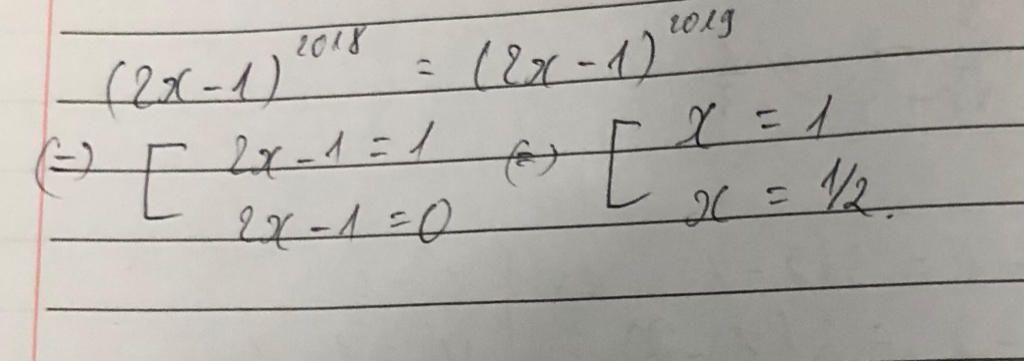 (2x-1)^2018 = (2x-1)^2019
(=) [ 2x-1=1 (=) [ x = 1
2x-1=0 x = 1/2.